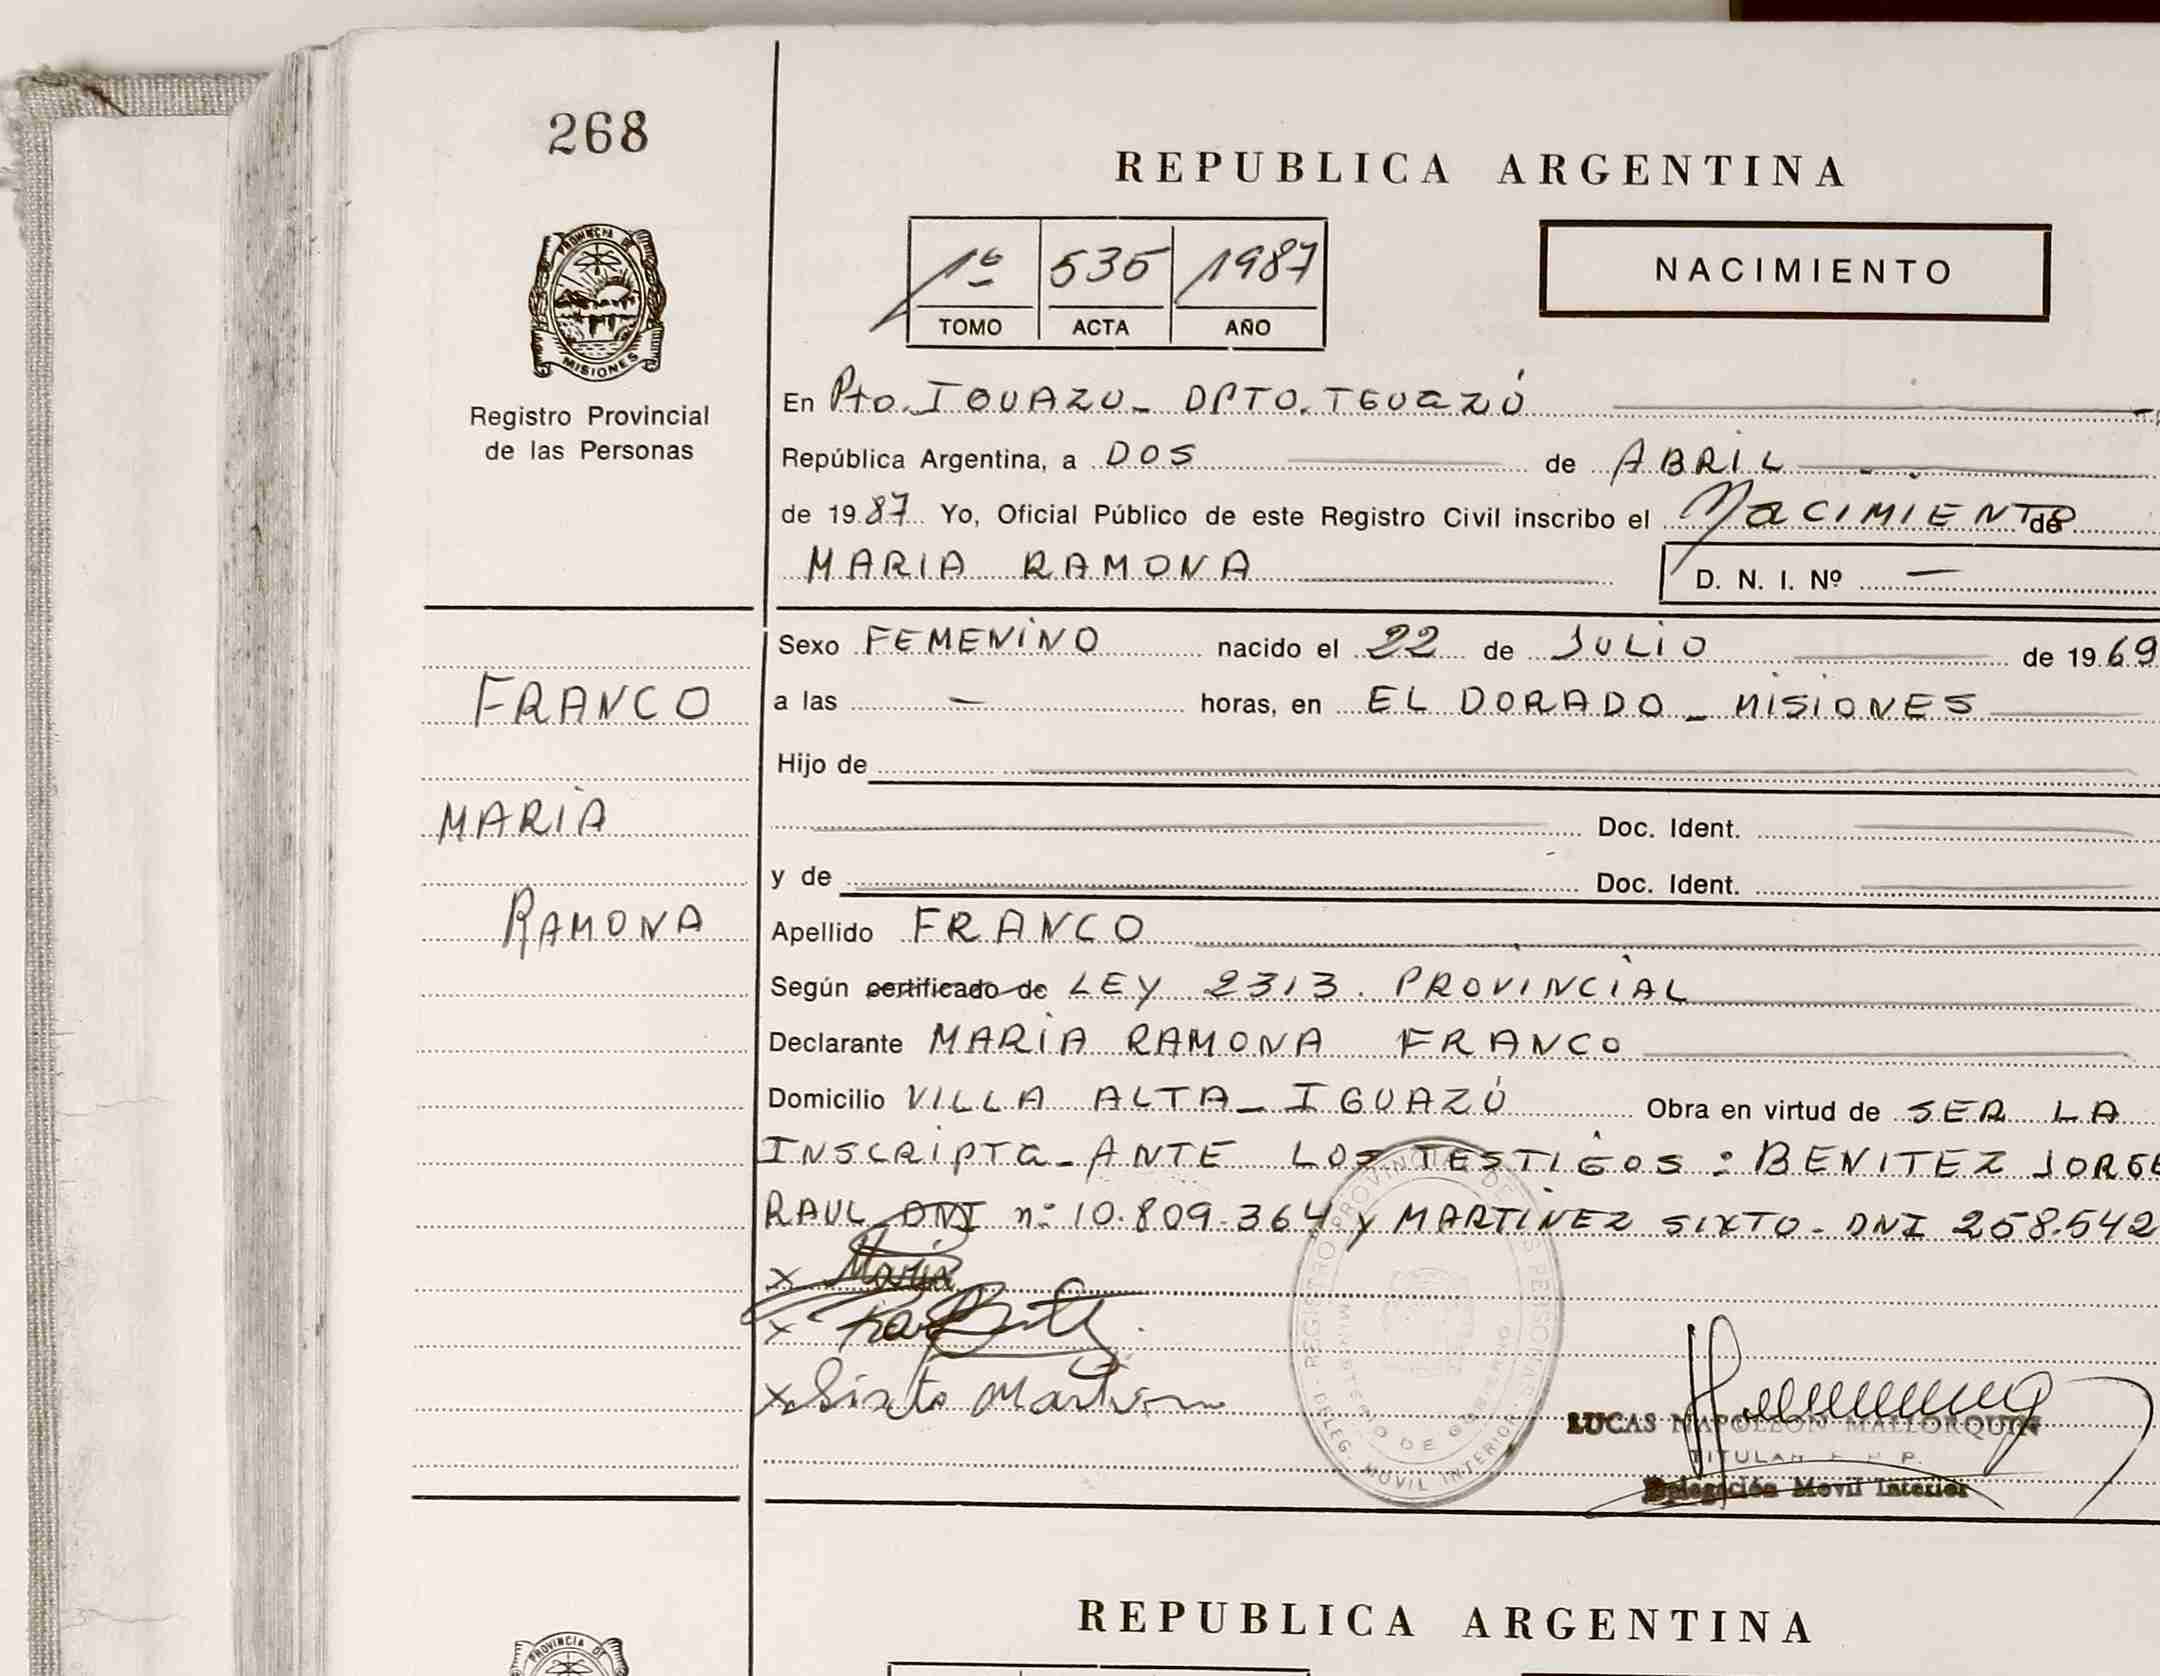 268
REPUBLICA ARGENTINA
PROVINCIA DE
MISIONES
Registro Provincial
de las Personas
1º 535 1987
TOMO ACTA AÑO
NACIMIENTO
En Pto. IGUAZU - DPTO. IGUAZÚ
República Argentina, a DOS de ABRIL
de 1987 Yo, Oficial Público de este Registro Civil inscribo el NACIMIENTO de
MARIA RAMONA
D. N. I. Nº —
Sexo FEMENINO nacido el 22 de JULIO de 1969
FRANCO
a las — horas, en EL DORADO - MISIONES
Hijo de
MARIA
Doc. Ident.
y de Doc. Ident.
RAMONA
Apellido FRANCO
Según certificado de LEY 2313. PROVINCIAL
Declarante MARIA RAMONA FRANCO
Domicilio VILLA ALTA - IGUAZÚ Obra en virtud de SER LA
INSCRIPTA - ANTE LOS TESTIGOS: BENITEZ JORGE
RAUL DNI nº 10.809.364 y MARTINEZ SIXTO - DNI 258.542
x Maria
x
x Sixto Martinez
REGISTRO PROVINCIAL DE LAS PERSONAS
MINISTERIO DE GOBIERNO
DELEG. MOVIL INTERIOR
LUCAS NAPOLEON MALLORQUIN
TITULAR
Delegación Movil Interior
REPUBLICA ARGENTINA
PROVINCIA DE